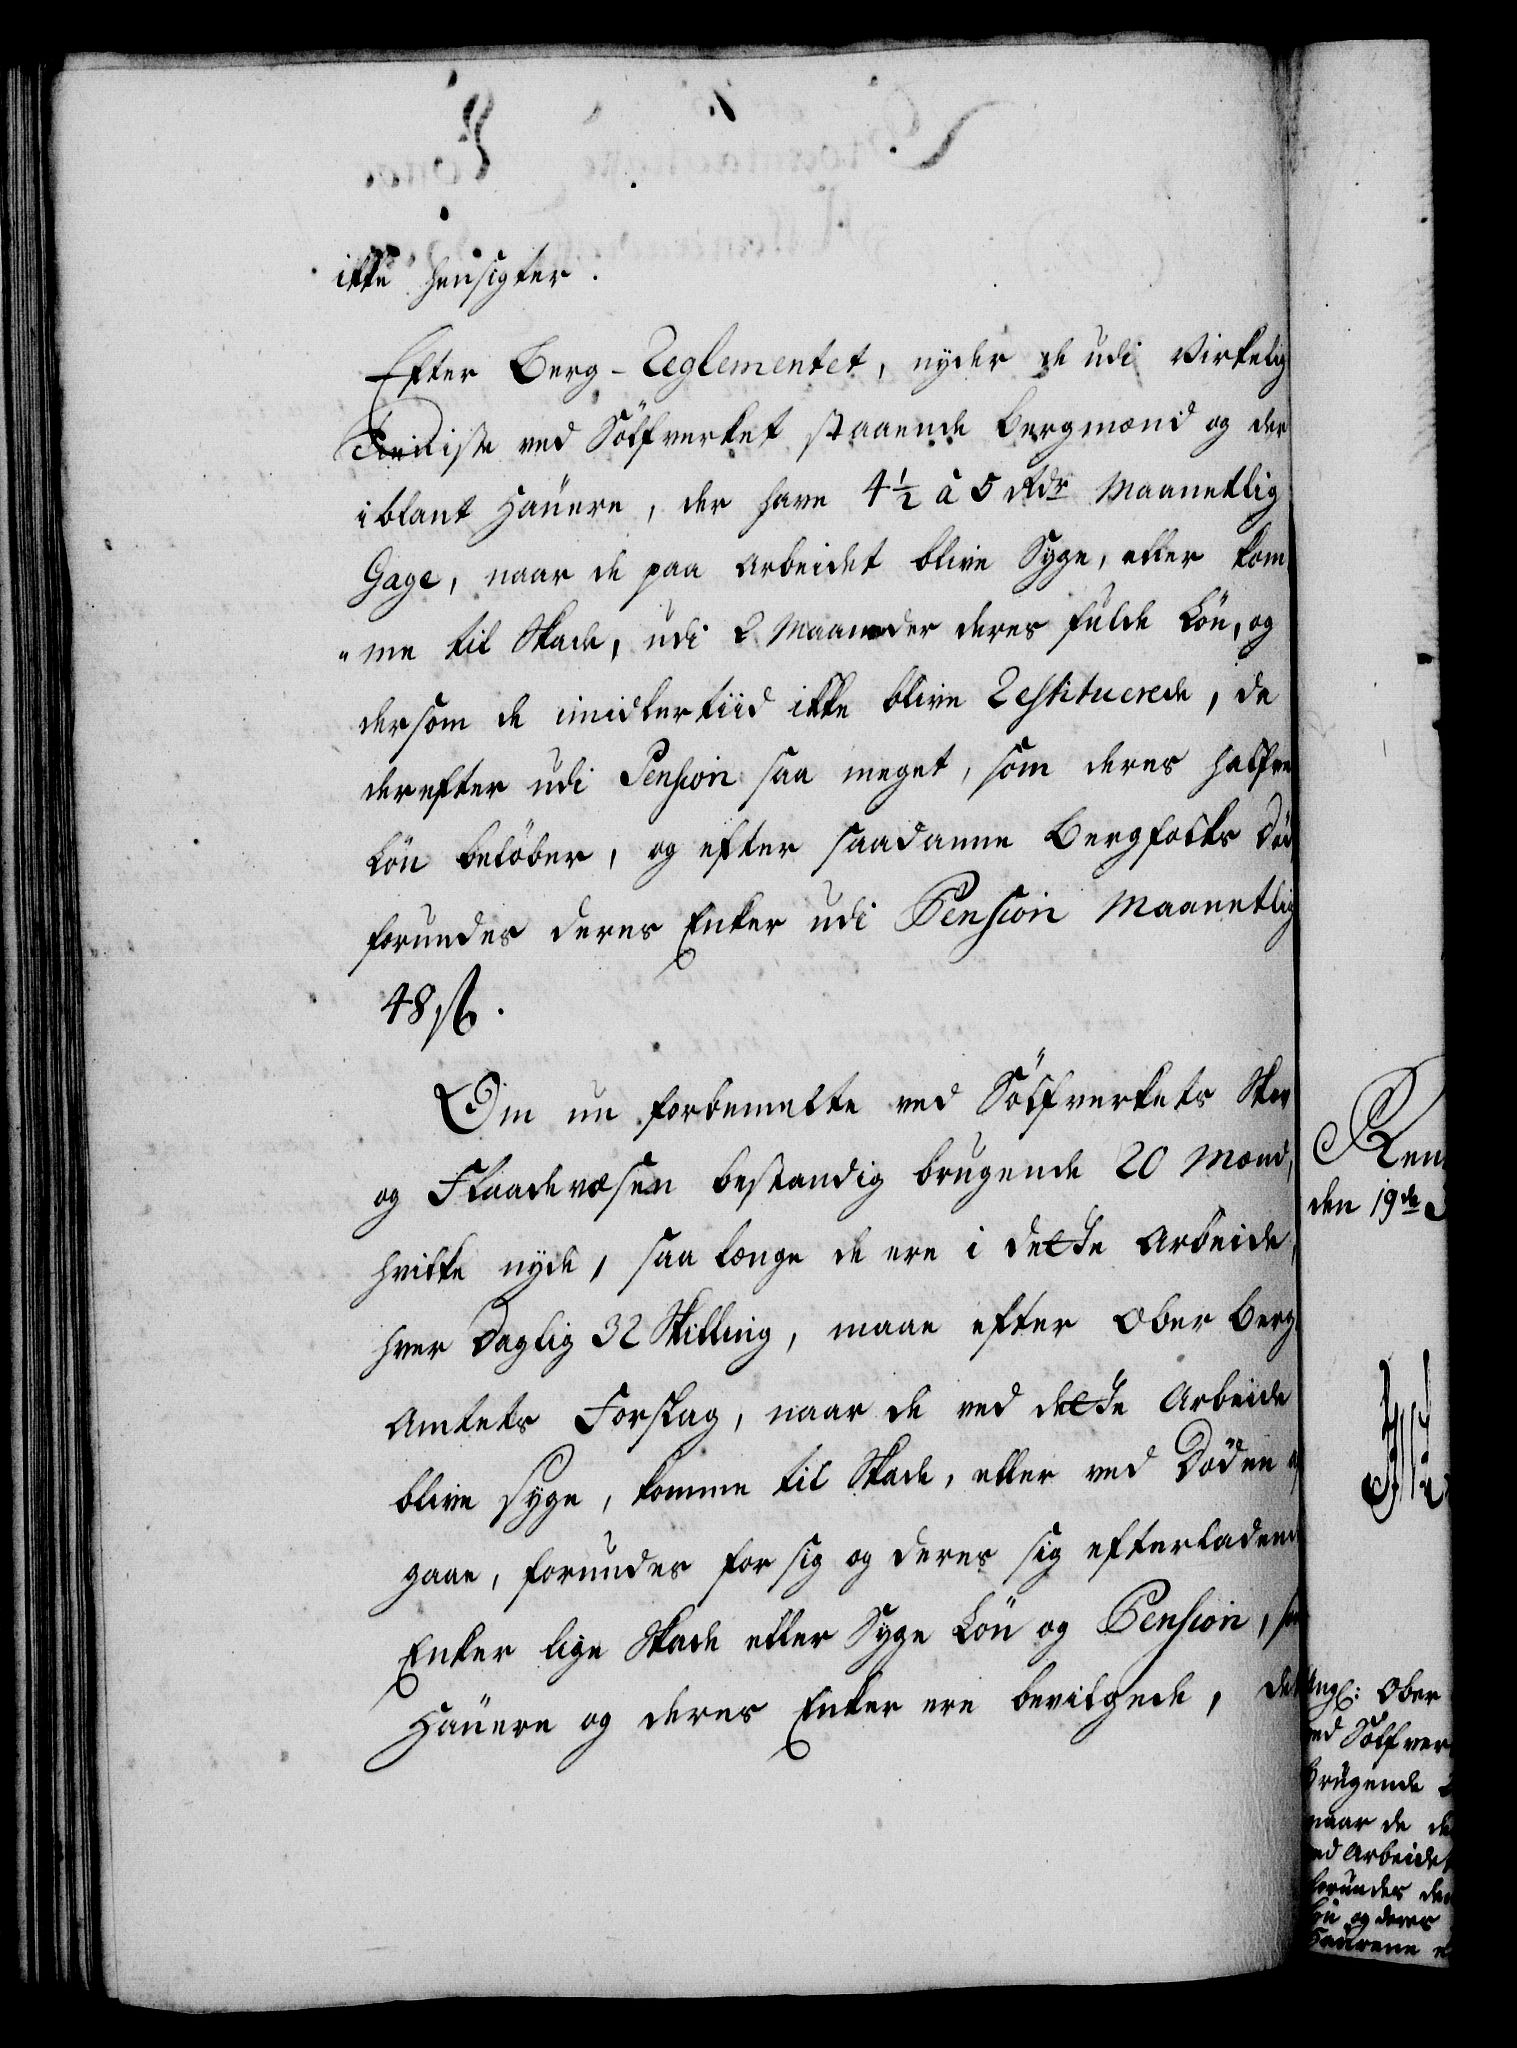 ikke hensigter.
Efter Berg-Reglementet, nyder de udi virkelig
Tieniste ved Sölfverket staaende Bergmænd og der
iblant Hauere, der have 4½ à 5 Rdr Maanetlig
Gage, naar de paa Arbeidet blive Syge, eller kom
"me til Skade, udi 2 Maaneder deres fulde Lön, og
dersom de imidlertiid ikke blive Restituerede, da
derefter udi Pension saa meget, som deres halfve
Lön belöber, og efter saadanne Bergfolks Död
forundes deres Enker udi Pension Maanetlig
48 sk.
Om nu forbemelte ved Sölfverkets Skov
og Flaadevæsen bestandig brugende 20 Mænd,
hvilke nyde, saa længe de ere i dette Arbeide,
hver Daglig 32 Skilling, maae efter Ober Berg
Amtets Forslag, naar de ved dette Arbeide
blive syge, komme til Skade, eller ved Döden af
gaae, forundes for sig og deres sig efterladende
Enker lige Skade eller Syge Lön og Pension, som
Hauere og deres Enker ere bevilgede, det
Ren
den 19de
Ang: Ober
ved Sölfver
brugende 2
naar de
ved Arbeidet
forundes
og deres
Hauerene